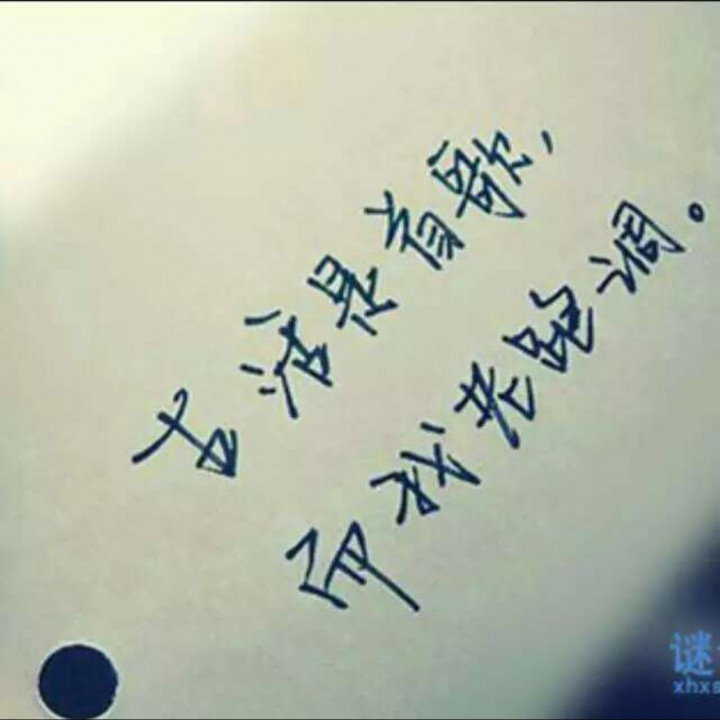 生活是首歌，
而我老跑调。
谜
xhxs